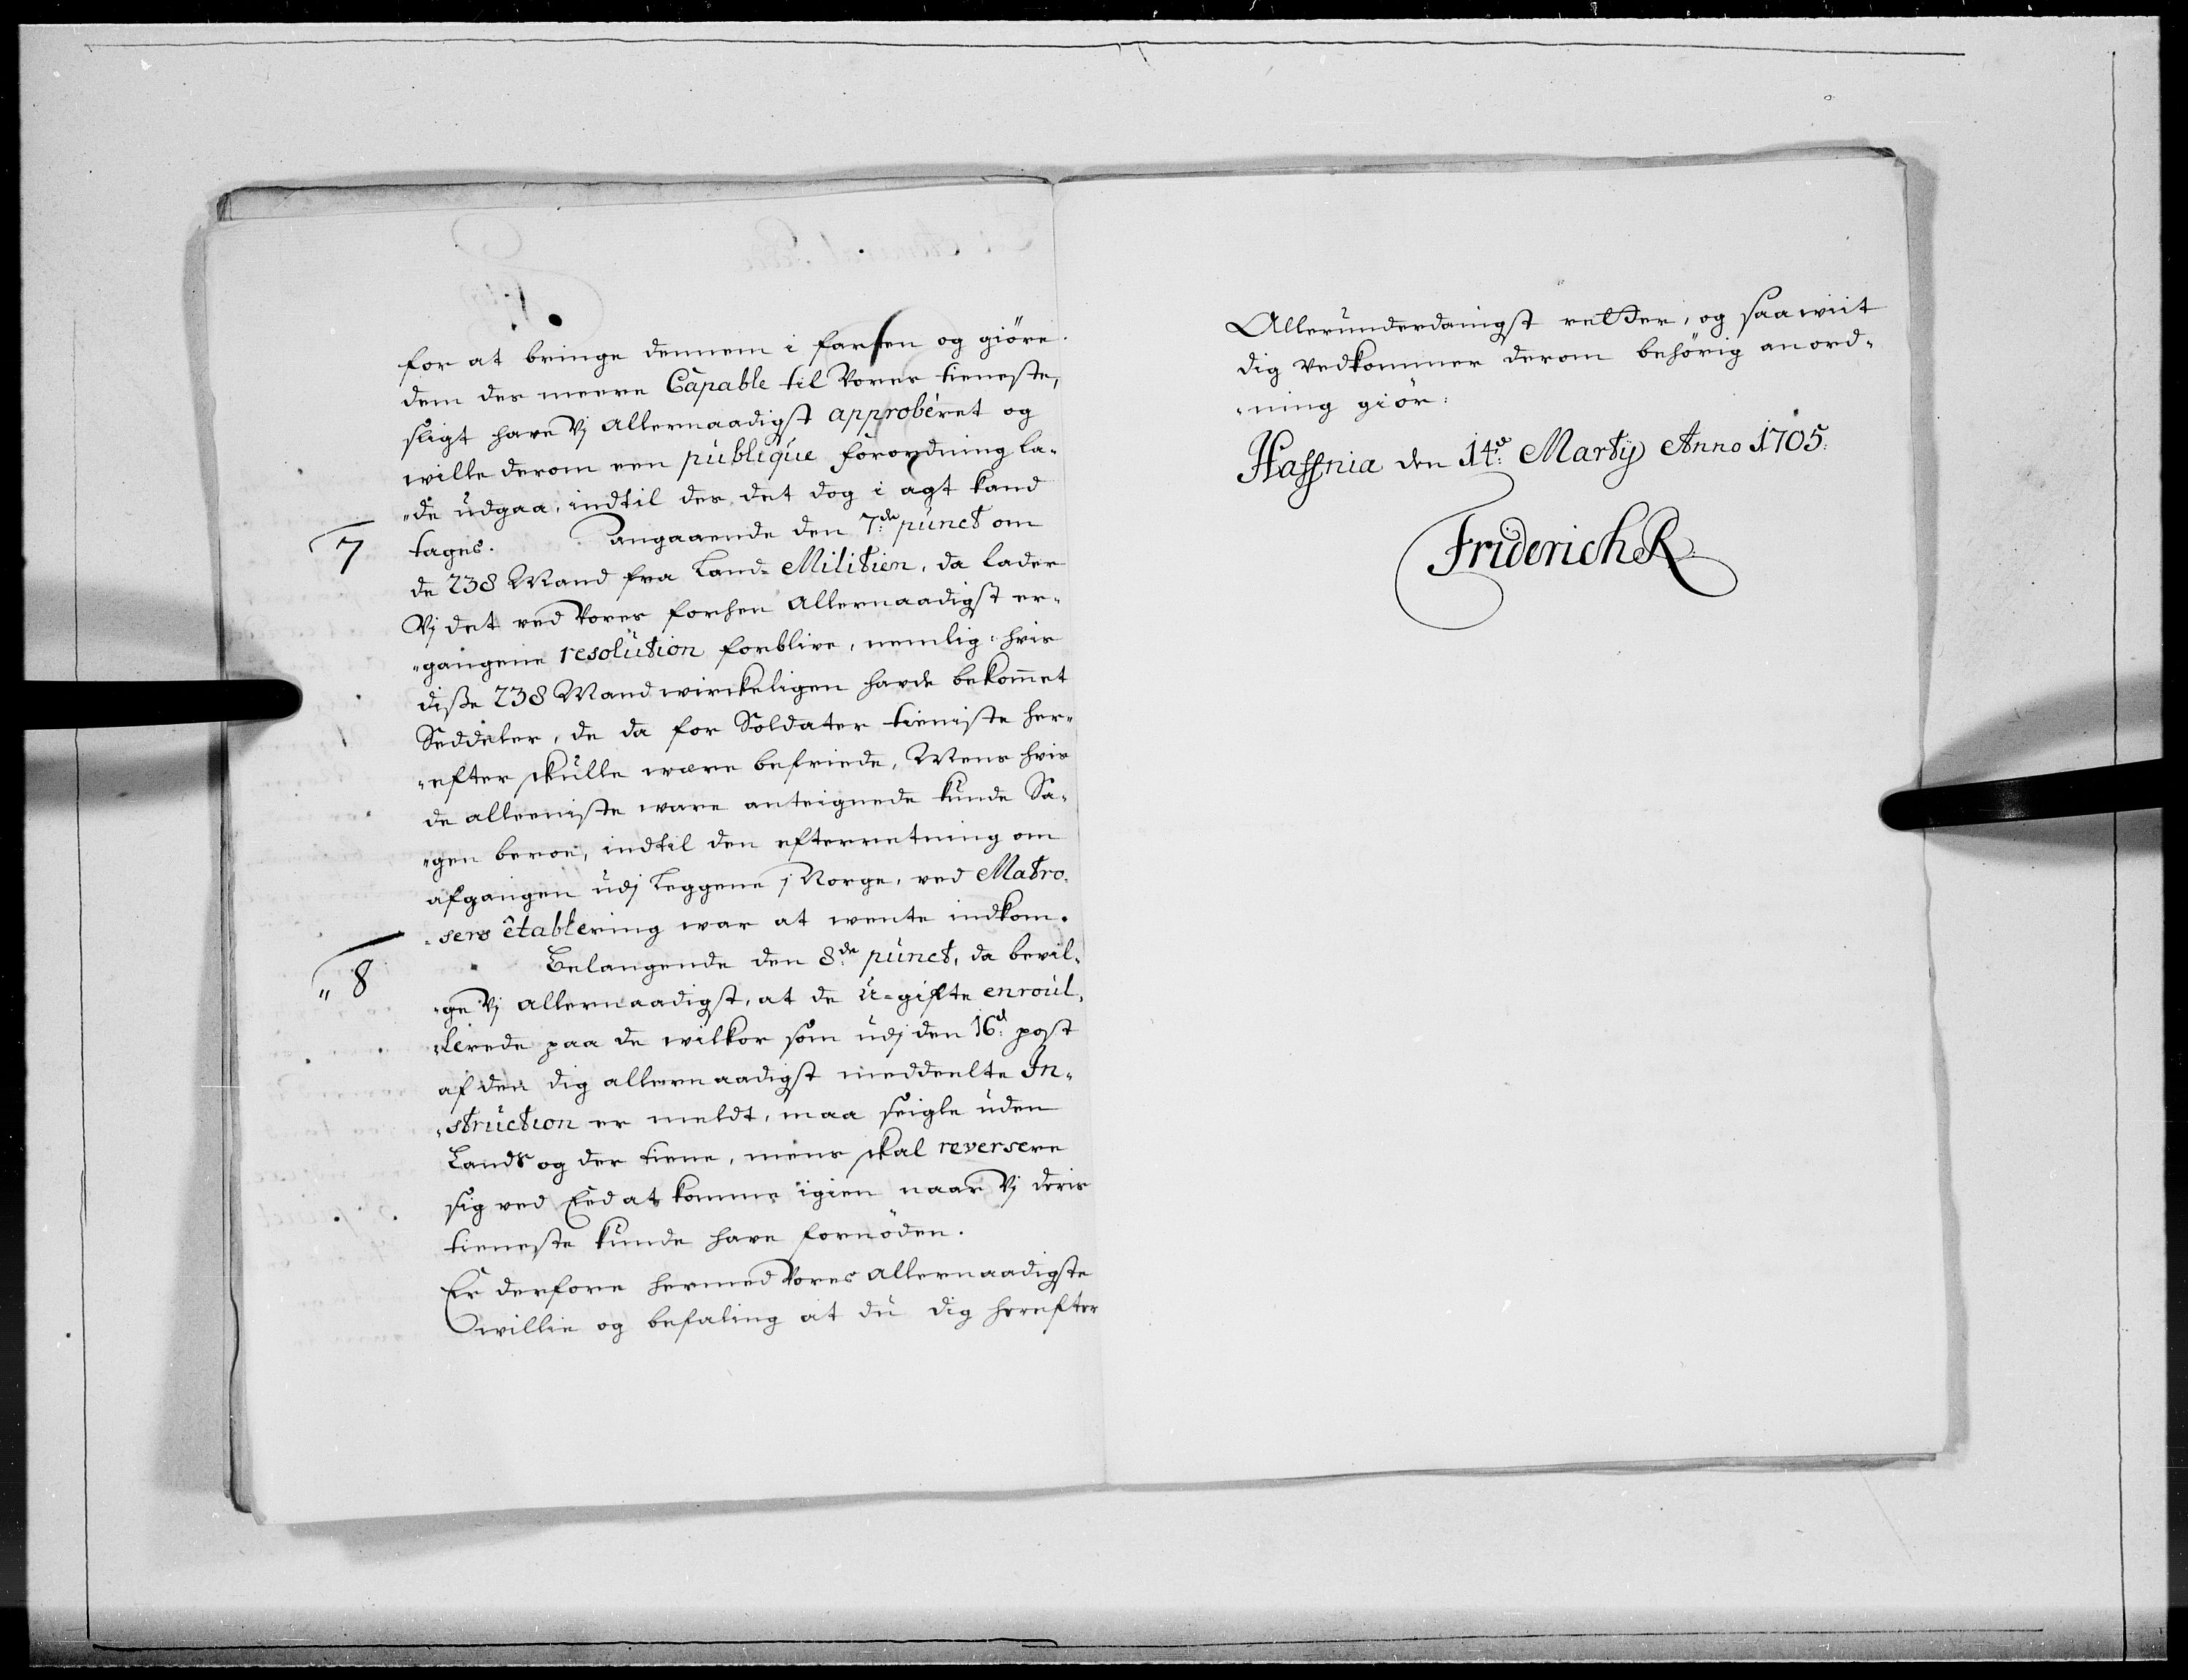 for at bringe dennem i farten og giöre
dem des meere Capable til Vores tieneste,
sligt have Vj allernaadigst approberet og
wille derom een publique forordning la-
"de udgaa, indtil des det dog i agt kand
7 tages. angaaende den 7de punct om
de 238 Mand fra Land-Militien, da lader
Vj det ved Vores forhen allernaadigst er-
"gangene resolution forblive, nemlig: hvis
disse 238 Mand wirckeligen havde bekommet
Seddeler, de da for Soldater tieniste her-
"efter skulle were befriede, Mens hvis
de alleeniste ware anteignede kunde Sa-
"gen beroe, indtil den efterretning om
afgangen udj Leggene j Norge, ved Matro-
"sers établering war at wente indkom.
" 8 Belangende den 8de punct, da bevil-
"ge Vj allernaadigst, at de u-gifte enroul-
"lerede paa de wilkor som udj den 16d post
af den dig allernaadigst meddeelte In-
"struction er meldt, maa seigle uden
Lands og der tiene, mens skal reversere
sig ved Eed at komme igien naar Vj deris
tieneste kunde have fornöden.
Er derfore hermed Vores allernaadigste
willie og befaling at du dig herefter
Allerunderdanigst retter, og saa wiit
dig vedkommer derom behörig anord-
"ning giör:
Haffnia den 14d Martij Anno 1705.
Friderich R